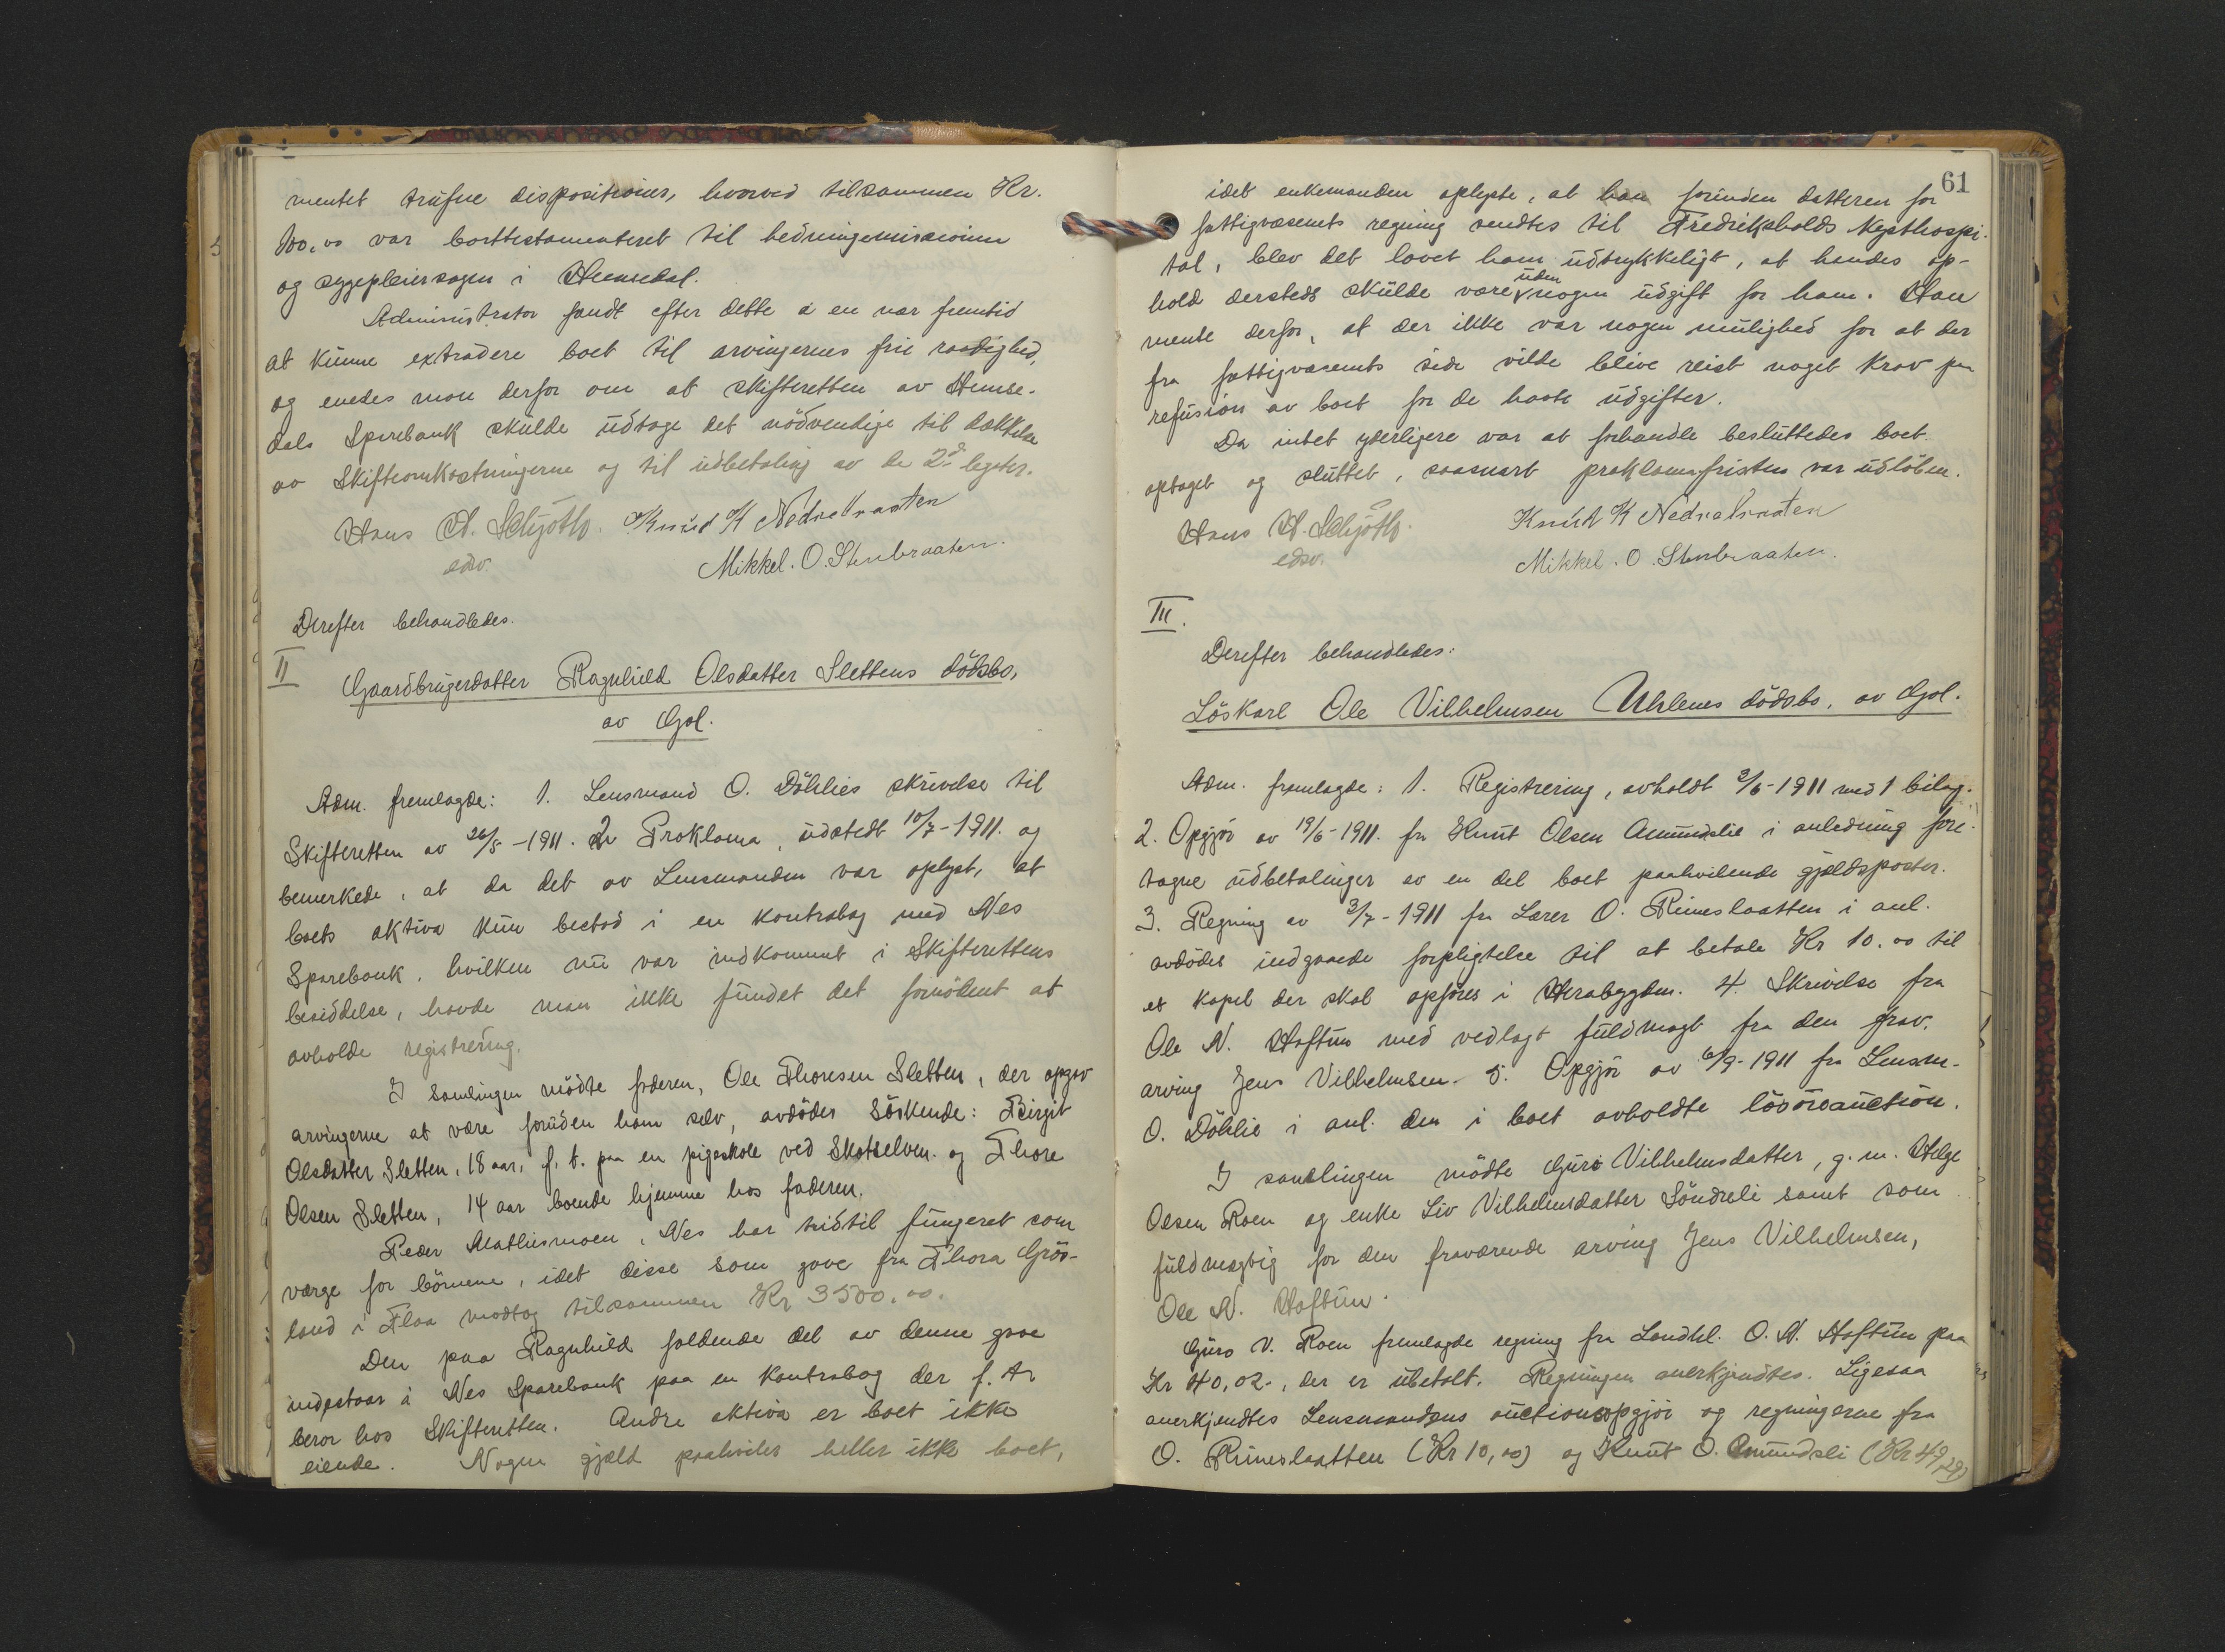 mentet trufne dispositioner, hvorved tilsammen Kr.
100,00 var borttestamenteret til hedningemissionen
og sygepleiersagen i Hemsedal.
Administrator fandt efter dette i en nær fremtid
at kunne extradere boet til arvingernes frie raadighed,
og enedes man derfor om at skifteretten av Hemse-
dals Sparebank skulde udtage det nödvendige til dækkelse
av Skifteomkostningerne og til udbetaling av de 2de legater.
Hans H. Schjøth. Knud K Nedrebraaten
edsv. Mikkel. O. Stenbraaten.
Derefter behandledes.
II
Gaardbrugerdatter Ragnhild Olsdatter Slettens dödsbo,
av Gol.
Adm. fremlagde: 1. Lensmand O. Döhlies skrivelse til
Skifteretten av 26/5-1911. 2. Proklama, udstedt 10/7-1911. og
bemerkede, at da det av Lensmanden var oplyst, at
boets aktiva kun bestod i en kontrabog med Nes
Sparebank, hvilken nu var indkommet i Skifterettens
besiddelse, havde man ikke fundet det fornödent at
avholde registrering.
I samlingen mödte faderen, Ole Thoresen Sletten, der opgav
arvingerne at være foruden ham selv, avdödes söskende: Birgit
Olsdatter Sletten, 18 aar, f. t. paa en pigeskole ved Skotselven. og Thore
Olsen Sletten, 14 aar boende hjemme hos faderen.
Peder Mathismoen, Nes har hidtil fungeret som
værge for börnene, idet disse som gave fra Thora Grös-
land i Flaa modtog tilsammen Kr 3500.00.
Den paa Ragnhild faldende del av denne gave
indestaar i Nes Sparebank paa en kontrabog der f. t.
beror hos Skifteretten. Andre aktiva er boet ikke
eiende. Nogen gjæld paahviler heller ikke boet,
61
idet enkemanden oplyste, at han foruden datteren for
fattigvæsenets regning sendtes til Fredrikshalds Nepthospi-
tal, blev det lovet ham udtrykkeligt, at hendes op-
hold dersteds skulde være uden nogen udgift for ham. Han
mente derfor, at der ikke var nogen mulighed for at der
fra fattigvæsenets side vilde blive reist noget krav paa
refusion av boet for de havte udgifter.
Da intet yderligere var at forhandle besluttedes boet
optaget og sluttet, saasnart proklamafristen var udlöben.
Hans H. Schjøth. Knut K Nedrebraaten
edsv. Mikkel. O. Stenbraaten.
III.
Derefter behandledes:
Löskarl Ole Vilhelmsen Uhlenes dödsbo, av Gol.
Adm. fremlagde: 1. Registrering, avholdt 3/6-1911 med 1 bilag.
2. Opgjör av 19/6-1911. fra Knut Olsen Amundslie i anledning fore-
tagne udbetalinger av en del boet paahvilende gjældsposter.
3. Regning av 3/7-1911 fra Lærer O. Runeslaatten i anl.
avdödes indgaaede forpligtelse til at betale Kr 10.00 til
et kapel der skal opföres i Herabygden. 4. Skrivelse fra
Ole N. Haftun med vedlagt fuldmagt fra den frav.
arving Jens Vilhelmsen. 5. Opgjör av 6/9-1911 fra Lensm-
O. Döhlie i anl. den i boet avholdte lösöreauction.
I samlingen mödte Guro Vilhelmsdatter, g. m. Helge
Olsen Roen og enke Liv Vilhelmsdatter Söndreli samt som
fuldmægtig for den fraværende arving Jens Vilhelmsen,
Ole N. Haftun.
Guro V. Roen fremlagde regning fra Landhl. O. N. Haftun paa
Kr 40,02-, der er übetalt. Regningen anerkjendtes. Ligesaa
anerkjendtes Lensmandens auctionsopgjör og regningerne fra
O. Runeslaatten (Kr 10,00) og Knut O. Amundsli (Kr 49,29)